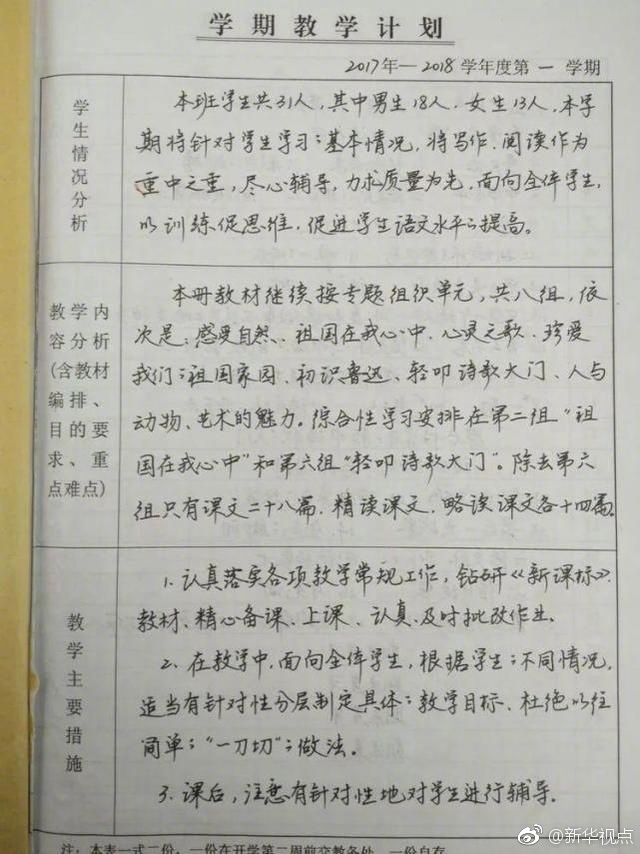 学期教学计划
2017年—2018学年度第一学期
学生情况分析
本班学生共31人，其中男生18人，女生13人，本学
期将针对学生学习的基本情况，将写作、阅读作为
重中之重，尽心辅导，力求质量为先，面向全体学生，
以训练促思维，促进学生语文水平的提高。
教学内
容分析
(含教材
编排、
目的要
求、重
点难点)
本册教材继续按专题组织单元，共八组，依
次是：感受自然、祖国在我心中、心灵之歌、珍爱
我们的祖国家园、初识鲁迅、轻叩诗歌大门、人与
动物、艺术的魅力。综合性学习安排在第二组“祖
国在我心中”和第六组“轻叩诗歌大门”。除去第六
组只有课文二十八篇，精读课文、略读课文各十四篇。
教学主要措施
1.认真落实各项教学常规工作，钻研《新课标》、
教材、精心备课、上课、认真、及时批改作业。
2.在教学中，面向全体学生，根据学生的不同情况，
适当有针对性分层制定具体的教学目标、杜绝以往
简单的“一刀切”的做法。
3.课后，注意有针对性地对学生进行辅导。
注：本表一式二份，一份在开学第二周前交教务处，一份自存
@新华视点